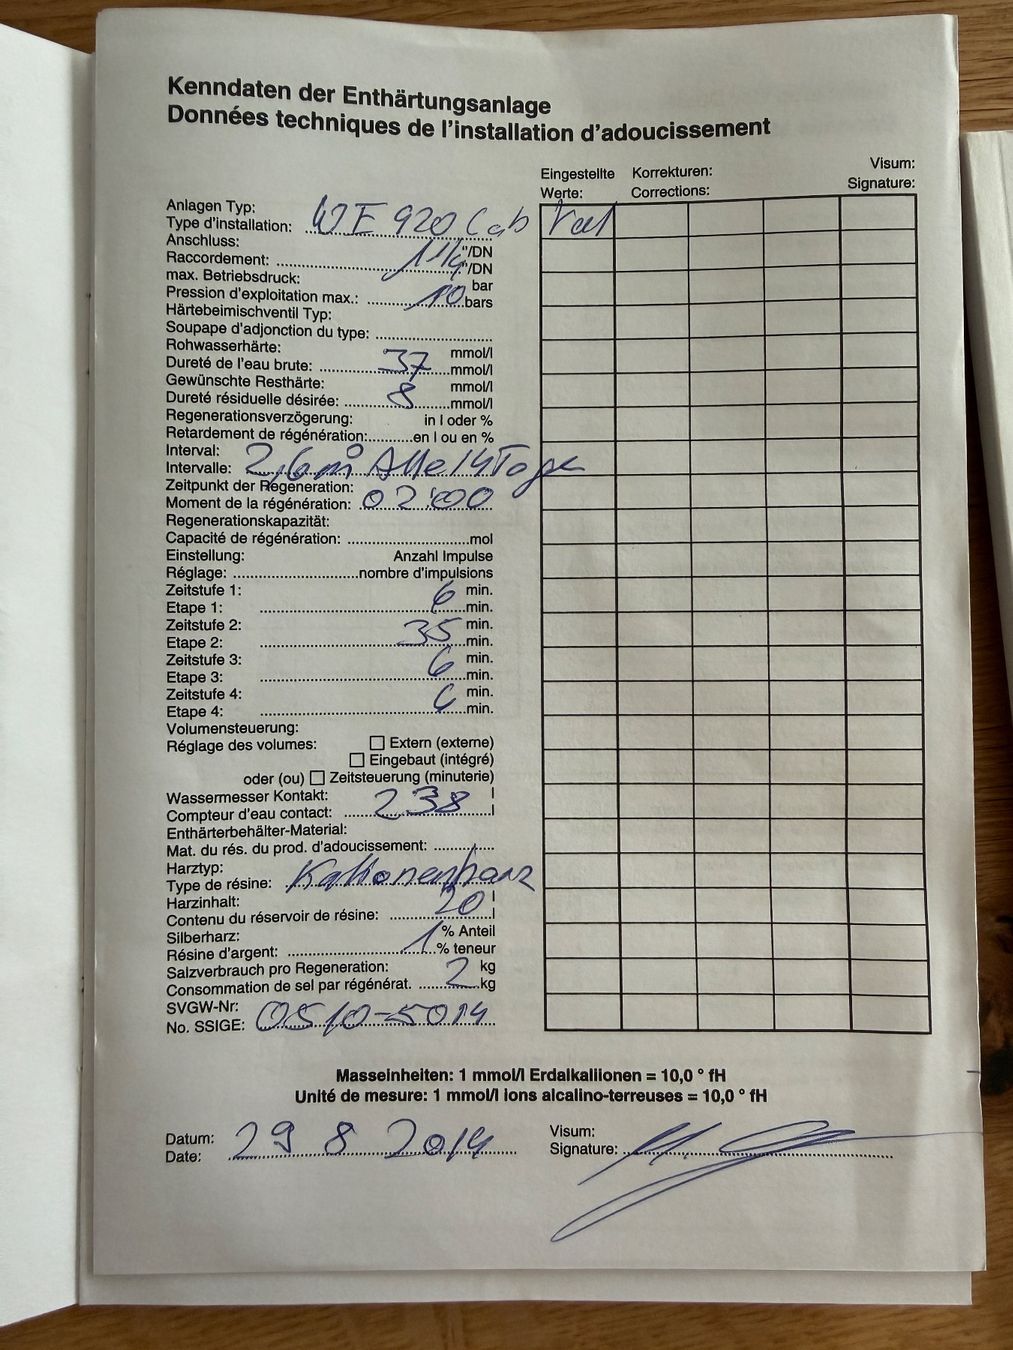 Kenndaten der Enthärtungsanlage
Données techniques de l'installation d'adoucissement
Eingestellte Korrekturen: Visum:
Werte: Corrections: Signature:
Anlagen Typ:
Type d'installation: WE 920 Cab
Anschluss: "/DN
Raccordement: 1 1/4 "/DN
max. Betriebsdruck: bar
Pression d'exploitation max.: 10 bars
Härtebeimischventil Typ:
Soupape d'adjonction du type:
Rohwasserhärte: mmol/l
Dureté de l'eau brute: 37 mmol/l
Gewünschte Resthärte: mmol/l
Dureté résiduelle désirée: 8 mmol/l
Regenerationsverzögerung: in l oder %
Retardement de régénération: en l ou en %
Interval:
Intervalle: 2,6 m³ Alle 14 Tage
Zeitpunkt der Regeneration:
Moment de la régénération: 02:00
Regenerationskapazität:
Capacité de régénération: mol
Einstellung: Anzahl Impulse
Réglage: nombre d'impulsions
Zeitstufe 1: 6 min.
Etape 1: min.
Zeitstufe 2: min.
Etape 2: 35 min.
Zeitstufe 3: 6 min.
Etape 3: min.
Zeitstufe 4: min.
Etape 4: min.
Volumensteuerung:
Réglage des volumes: Extern (externe)
Eingebaut (intégré)
oder (ou) Zeitsteuerung (minuterie)
Wassermesser Kontakt: l
Compteur d'eau contact: 238 l
Enthärterbehälter-Material:
Mat. du rés. du prod. d'adoucissement:
Harztyp:
Type de résine: Kationenharz
Harzinhalt: 20 l
Contenu du réservoir de résine: l
Silberharz: % Anteil
Résine d'argent: 1 % teneur
Salzverbrauch pro Regeneration: kg
Consommation de sel par régénérat. 2 kg
SVGW-Nr:
No. SSIGE: 0510-5014
Masseinheiten: 1 mmol/l Erdalkaliionen = 10,0 ° fH
Unité de mesure: 1 mmol/l ions alcalino-terreuses = 10,0 ° fH
Datum: Visum:
Date: 29 8 2014 Signature: